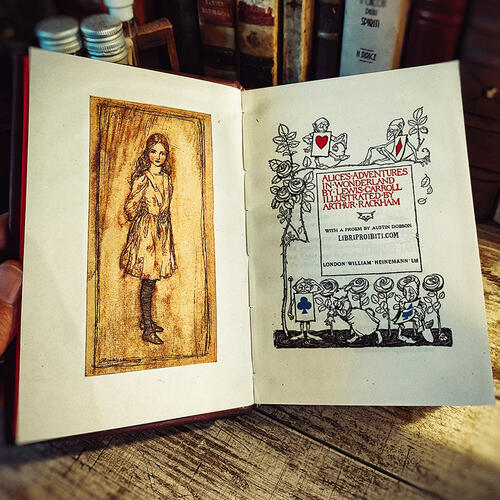 SPIRITI
ALICE'S·ADVENTURES
IN·WONDERLAND
BY·LEWIS·CARROLL
ILLUSTRATED·BY
ARTHUR·RACKHAM
WITH A PROEM BY AUSTIN DOBSON
LIBRIPROIBITI.COM
LONDON·WILLIAM·HEINEMANN·Ltd